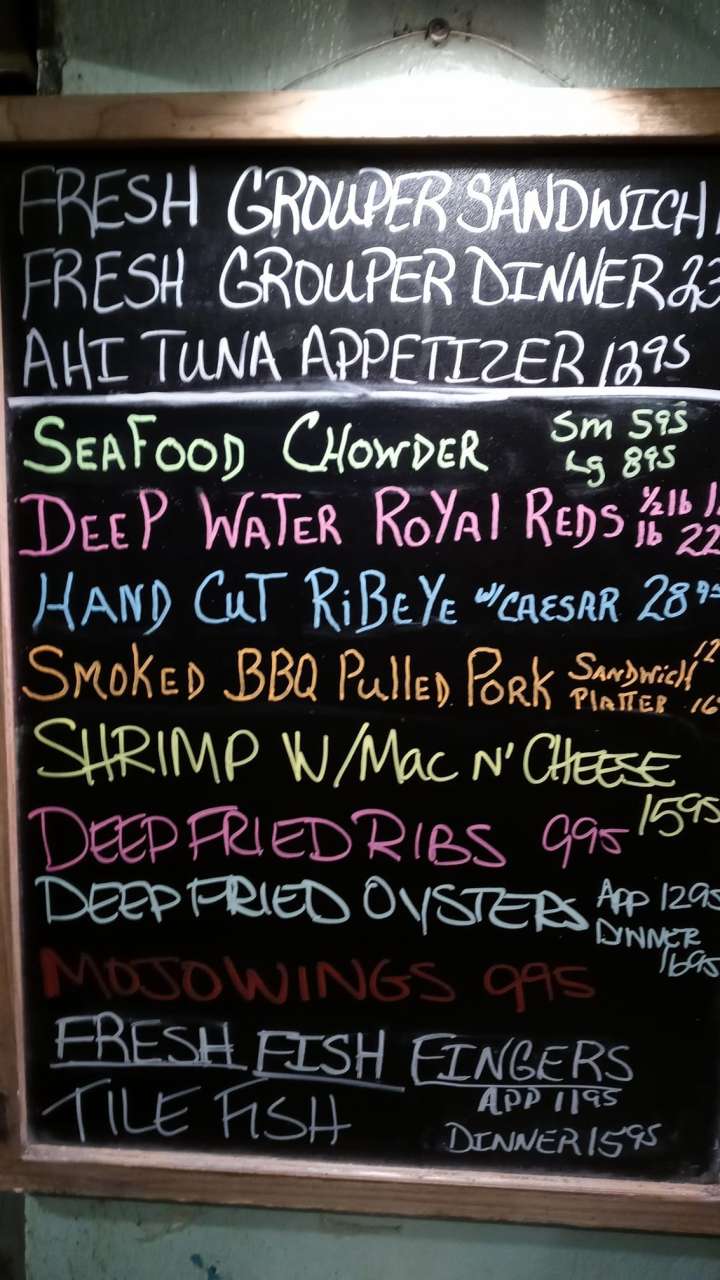 FRESH GROUPER SANDWICH
FRESH GROUPER DINNER 23
AHI TUNA APPETIZER 1295
SEAFOOD CHOWDER Sm 595
Lg 895
DEEP WATER ROYAL REDS ½lb
lb 22
HAND CUT RiBEYE w/CAESAR 2895
SMOKED BBQ PULLED PORK SANDWICH 12
PLATTER 16
SHRIMP W/MAC N' CHEESE
1595
DEEP FRIED RIBS 995
DEEP FRIED OYSTERS APP 1295
DINNER
1695
MOJO WINGS 995
FRESH FISH FINGERS
APP 1195
TILE FISH
DINNER 1595